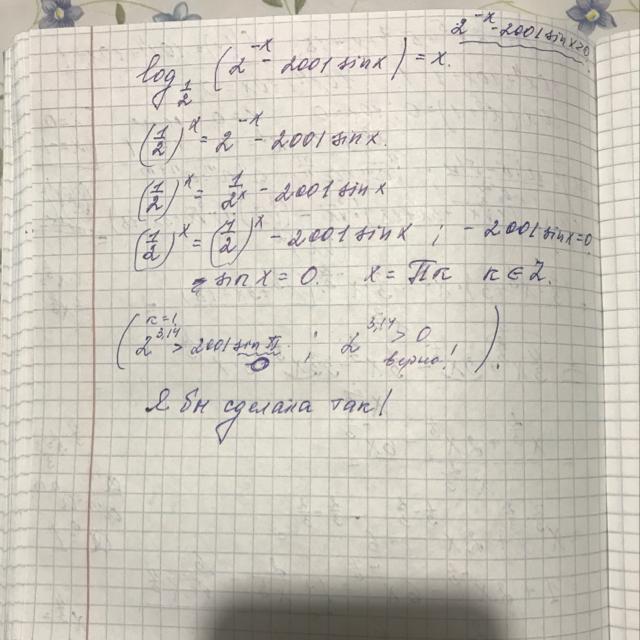 2^{-x} - 2001 sin x > 0
log_{1/2} (2^{-x} - 2001 sin x) = x.
(1/2)^x = 2^{-x} - 2001 sin x.
(1/2)^x = 1/2^x - 2001 sin x
(1/2)^x = (1/2)^x - 2001 sin x ; - 2001 sin x = 0
sin x = 0. x = Пк к ∈ Z.
к = 1
( 2^{3,14} > 2001 sin П ; 2^{3,14} > 0 )
0 верно!
Я бы сделала так!